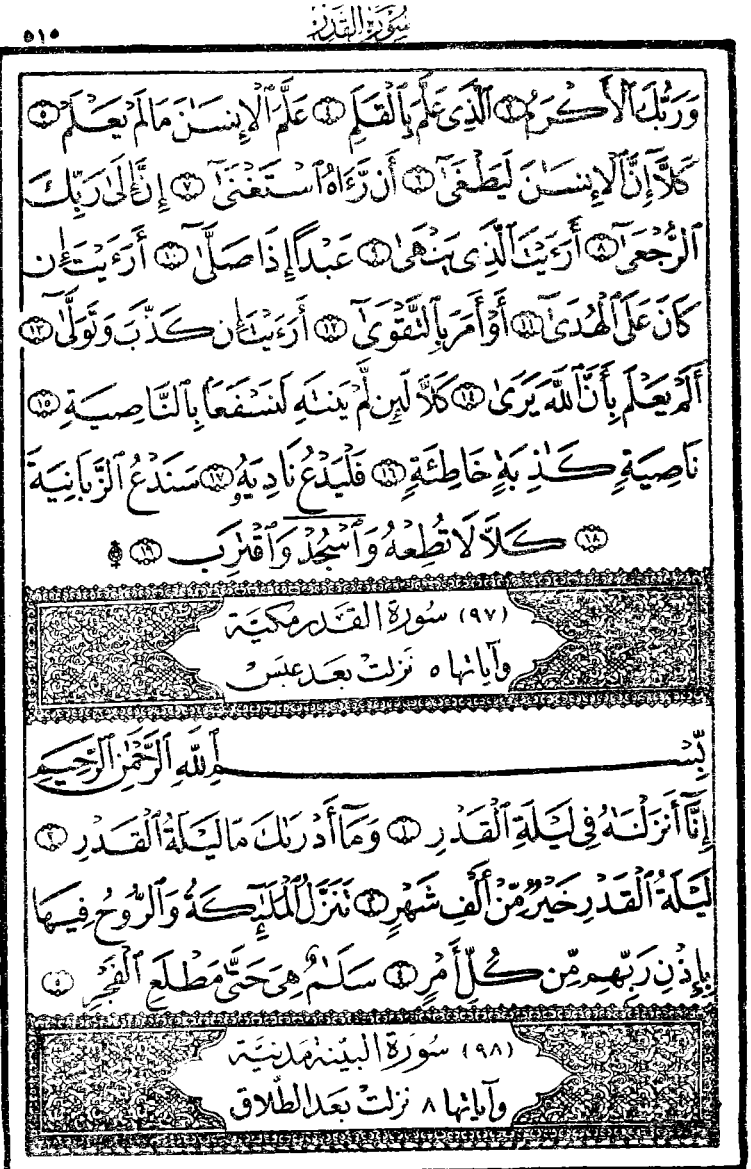 ٥١٥ سُورَةُ القَدْر
وَرَبُّكَ ٱلْأَكْرَمُ ۝٣ ٱلَّذِى عَلَّمَ بِٱلْقَلَمِ ۝٤ عَلَّمَ ٱلْإِنسَٰنَ مَا لَمْ يَعْلَمْ ۝٥
كَلَّآ إِنَّ ٱلْإِنسَٰنَ لَيَطْغَىٰٓ ۝٦ أَن رَّءَاهُ ٱسْتَغْنَىٰٓ ۝٧ إِنَّ إِلَىٰ رَبِّكَ
ٱلرُّجْعَىٰٓ ۝٨ أَرَءَيْتَ ٱلَّذِى يَنْهَىٰ ۝٩ عَبْدًا إِذَا صَلَّىٰٓ ۝١٠ أَرَءَيْتَ إِن
كَانَ عَلَى ٱلْهُدَىٰٓ ۝١١ أَوْ أَمَرَ بِٱلتَّقْوَىٰٓ ۝١٢ أَرَءَيْتَ إِن كَذَّبَ وَتَوَلَّىٰٓ ۝١٣
أَلَمْ يَعْلَم بِأَنَّ ٱللَّهَ يَرَىٰ ۝١٤ كَلَّا لَئِن لَّمْ يَنتَهِ لَنَسْفَعًۢا بِٱلنَّاصِيَةِ ۝١٥
نَاصِيَةٍ كَٰذِبَةٍ خَاطِئَةٍ ۝١٦ فَلْيَدْعُ نَادِيَهُۥ ۝١٧ سَنَدْعُ ٱلزَّبَانِيَةَ
۝١٨ كَلَّا لَا تُطِعْهُ وَٱسْجُدْ وَٱقْتَرِب ۩ ۝١٩
(٩٧) سُورَةُ القَدْرِ مَكيَّة
وآياتها ٥ نَزَلتْ بَعْدَ عَبَسَ
بِسْمِ ٱللَّهِ ٱلرَّحْمَٰنِ ٱلرَّحِيمِ
إِنَّآ أَنزَلْنَٰهُ فِى لَيْلَةِ ٱلْقَدْرِ ۝١ وَمَآ أَدْرَىٰكَ مَا لَيْلَةُ ٱلْقَدْرِ ۝٢
لَيْلَةُ ٱلْقَدْرِ خَيْرٌ مِّنْ أَلْفِ شَهْرٍ ۝٣ تَنَزَّلُ ٱلْمَلَٰٓئِكَةُ وَٱلرُّوحُ فِيهَا
بِإِذْنِ رَبِّهِم مِّن كُلِّ أَمْرٍ ۝٤ سَلَٰمٌ هِىَ حَتَّىٰ مَطْلَعِ ٱلْفَجْرِ ۝٥
(٩٨) سُورَةُ البَيِّنَةِ مَدَنِيَّة
وآياتها ٨ نَزَلتْ بَعْدَ الطَّلَاق